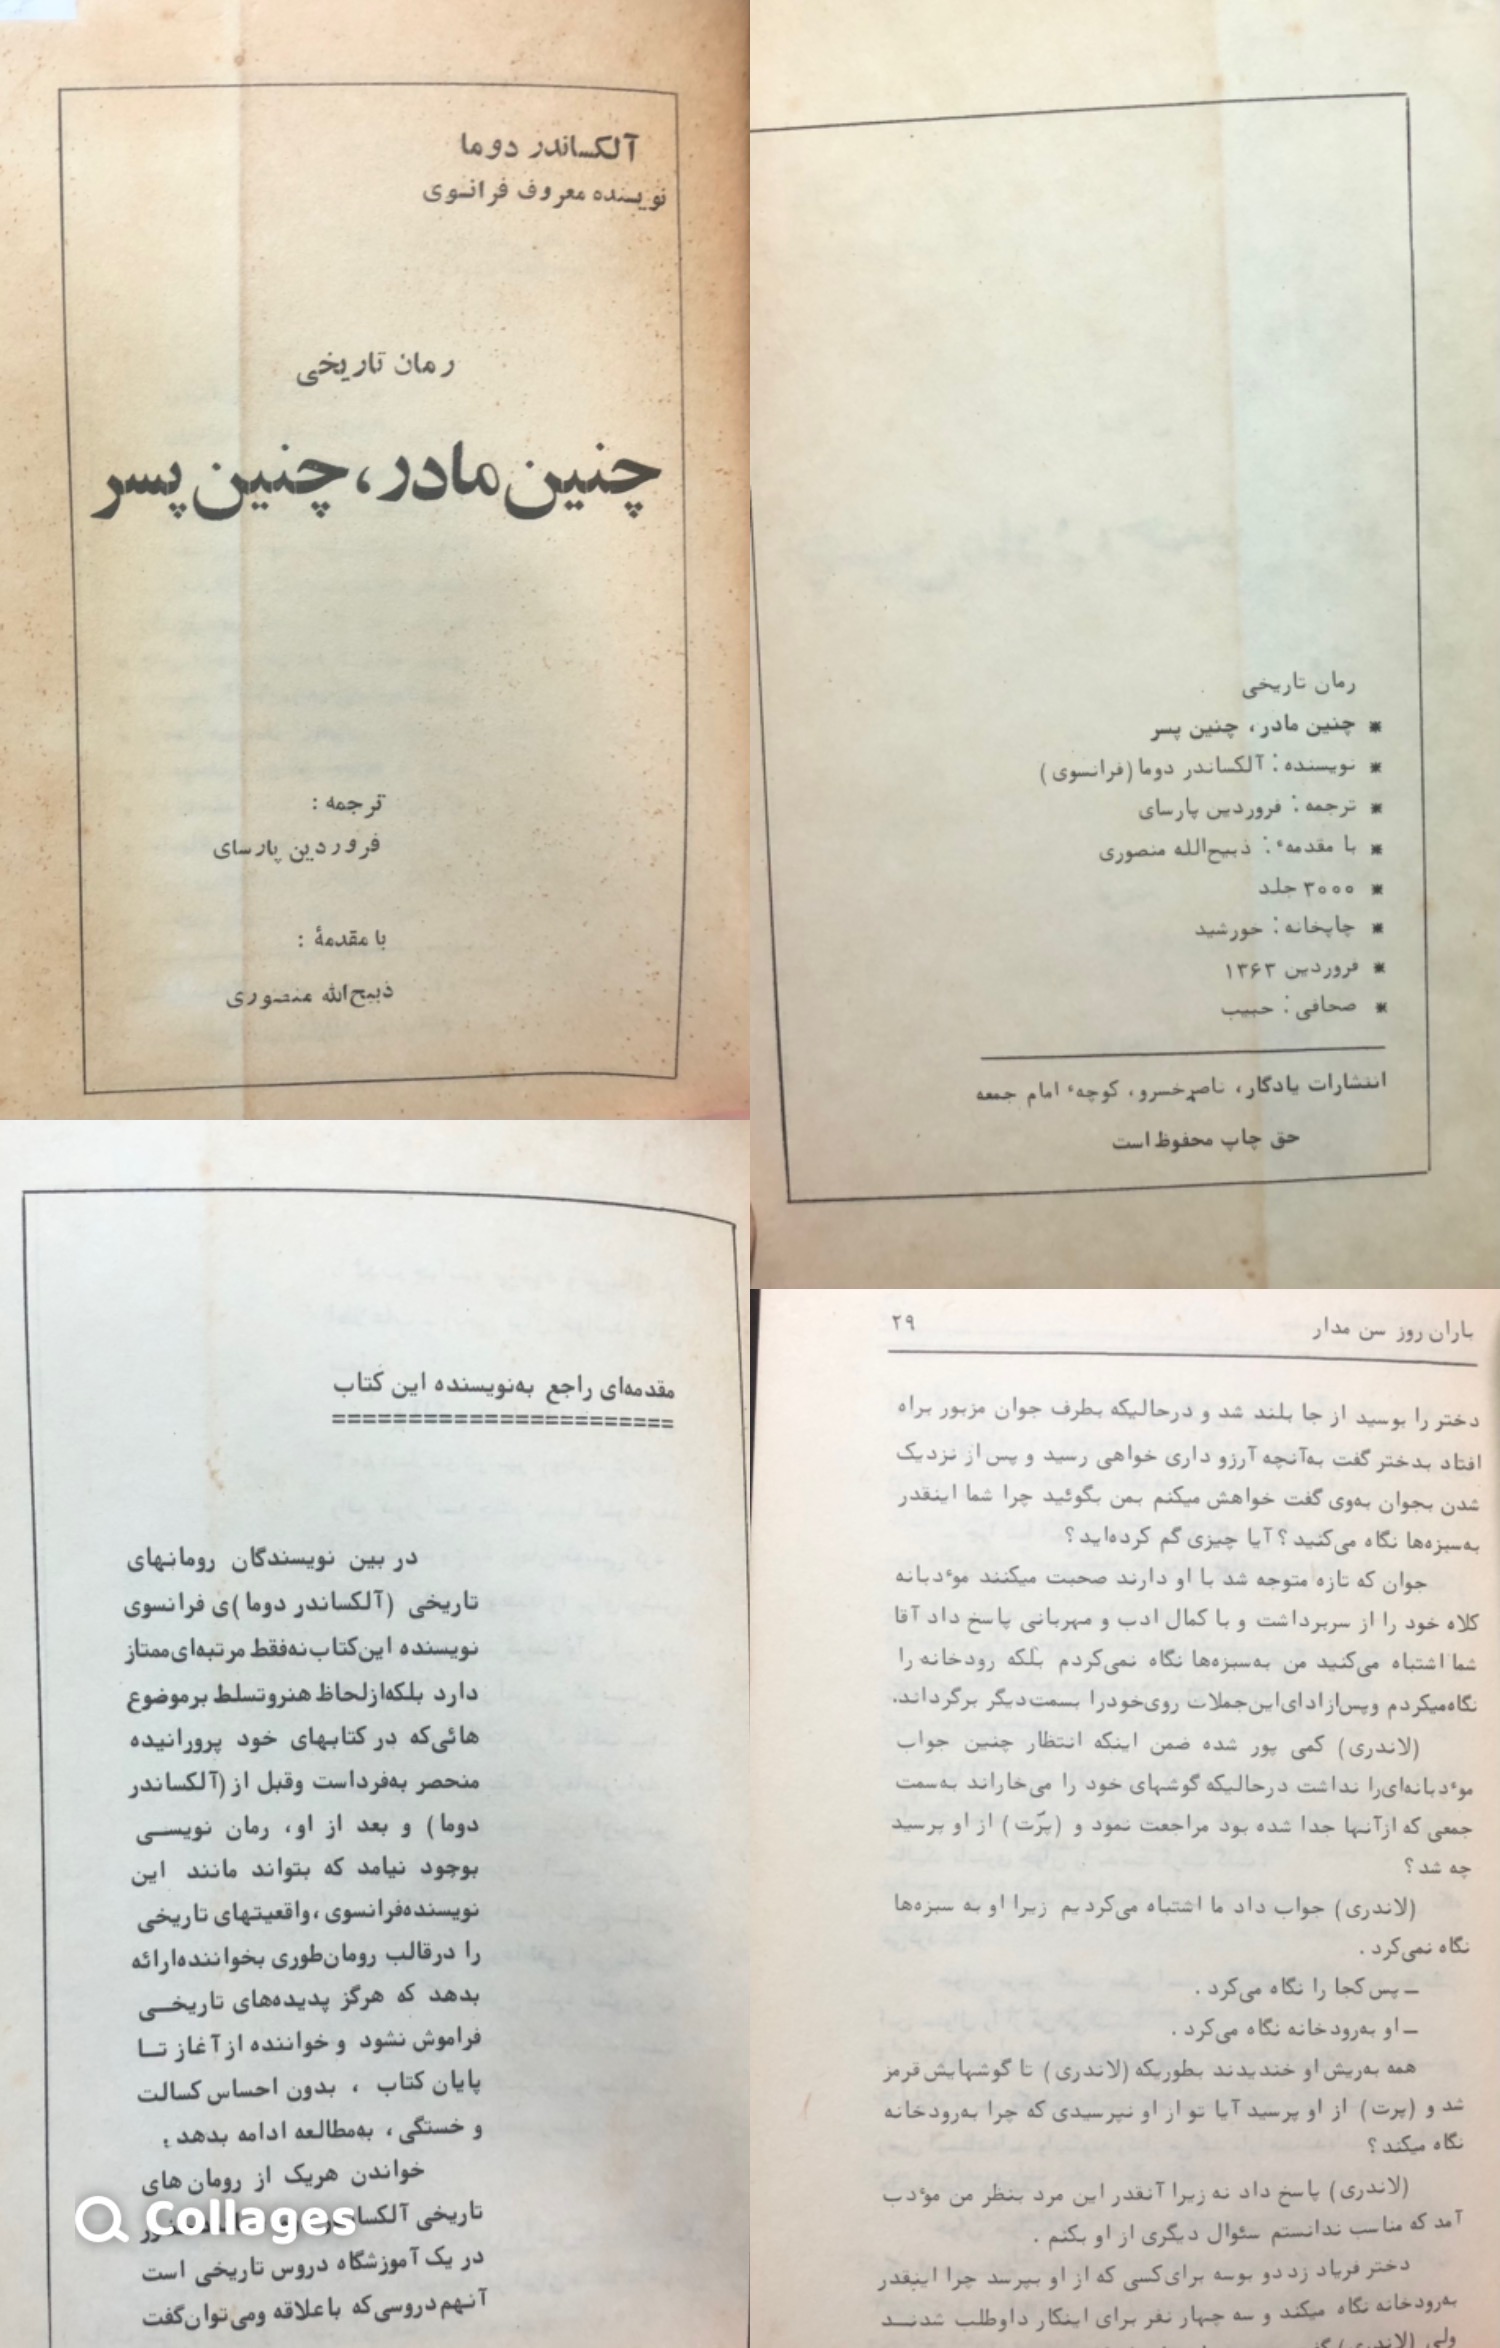 آلکساندر دوما
نویسنده معروف فرانسوی
رمان تاریخی
چنین مادر، چنین پسر
ترجمه :
فروردین پارسای
با مقدمهٔ :
ذبیح‌الله منصوری
رمان تاریخی
* چنین مادر، چنین پسر
* نویسنده : آلکساندر دوما (فرانسوی)
* ترجمه : فروردین پارسای
* با مقدمهء : ذبیح‌الله منصوری
* ۳۰۰۰ جلد
* چاپخانه : خورشید
* فروردین ۱۳۶۳
* صحافی : حبیب
انتشارات یادگار، ناصرخسرو، کوچهء امام جمعه
حق چاپ محفوظ است
مقدمه‌ای راجع به‌نویسنده این کتاب
======================
در بین نویسندگان رومانهای
تاریخی (آلکساندر دوما)ی فرانسوی
نویسنده این‌کتاب‌نه‌فقط مرتبه‌ای‌ممتاز
دارد بلکه‌ازلحاظ هنروتسلط برموضوع
هائی‌که در کتابهای خود پرورانیده
منحصر به‌فرداست وقبل از (آلکساندر
دوما) و بعد از او، رمان نویســی
بوجود نیامد که بتواند مانند این
نویسنده‌فرانسوی،واقعیتهای تاریخی
را درقالب رومان‌طوری بخواننده‌ارائه
بدهد که هرگز پدیده‌های تاریخــی
فراموش نشود و خواننده از آغاز تــا
پایان کتاب ، بدون احساس کسالت
و خستگی ، به‌مطالعه ادامه بدهد .
خواندن هریک از رومان های
تاریخی
در یک آموزشگاه دروس تاریخی است
آنهم‌دروسی‌که باعلاقه ومی‌توان‌گفت
Collages
باران روز سن مدار ۲۹
دختر را بوسید از جا بلند شد و درحالیکه بطرف جوان مزبور براه
افتاد بدختر گفت به‌آنچه آرزو داری خواهی رسید و پس از نزدیک
شدن بجوان به‌وی گفت خواهش میکنم بمن بگوئید چرا شما اینقدر
به‌سبزه‌ها نگاه می‌کنید ؟ آیا چیزی گم کرده‌اید ؟
جوان که تازه متوجه شد با او دارند صحبت میکنند موءدبانه
کلاه خود را از سربرداشت و با کمال ادب و مهربانی پاسخ داد آقا
شما اشتباه می‌کنید من به‌سبزه‌ها نگاه نمی‌کردم بلکه رودخانه را
نگاه‌میکردم وپس‌ازادای‌این‌جملات روی‌خودرا بسمت‌دیگر برگرداند.
(لاندری) کمی بور شده ضمن اینکه انتظار چنین جواب
موءدبانه‌ای‌را نداشت درحالیکه گوشهای خود را می‌خاراند به‌سمت
جمعی که ازآنها جدا شده بود مراجعت نمود و (پرّت) از او پرسید
چه شد ؟
(لاندری) جواب داد ما اشتباه می‌کردیم زیرا او به سبزه‌ها
نگاه نمی‌کرد .
ــ پس کجا را نگاه می‌کرد .
ــ او به‌رودخانه نگاه می‌کرد .
همه به‌ریش او خندیدند بطوریکه (لاندری) تا گوشهایش قرمز
شد و (پرت) از او پرسید آیا تو از او نپرسیدی که چرا به‌رودخانه
نگاه میکند ؟
(لاندری) پاسخ داد نه زیرا آنقدر این مرد بنظر من موءدب
آمد که مناسب ندانستم سئوال دیگری از او بکنم .
دختر فریاد زد دو بوسه برای‌کسی که از او بپرسد چرا اینقدر
به‌رودخانه نگاه میکند و سه چهار نفر برای اینکار داوطلب شدنــد
ولی (لاندری)